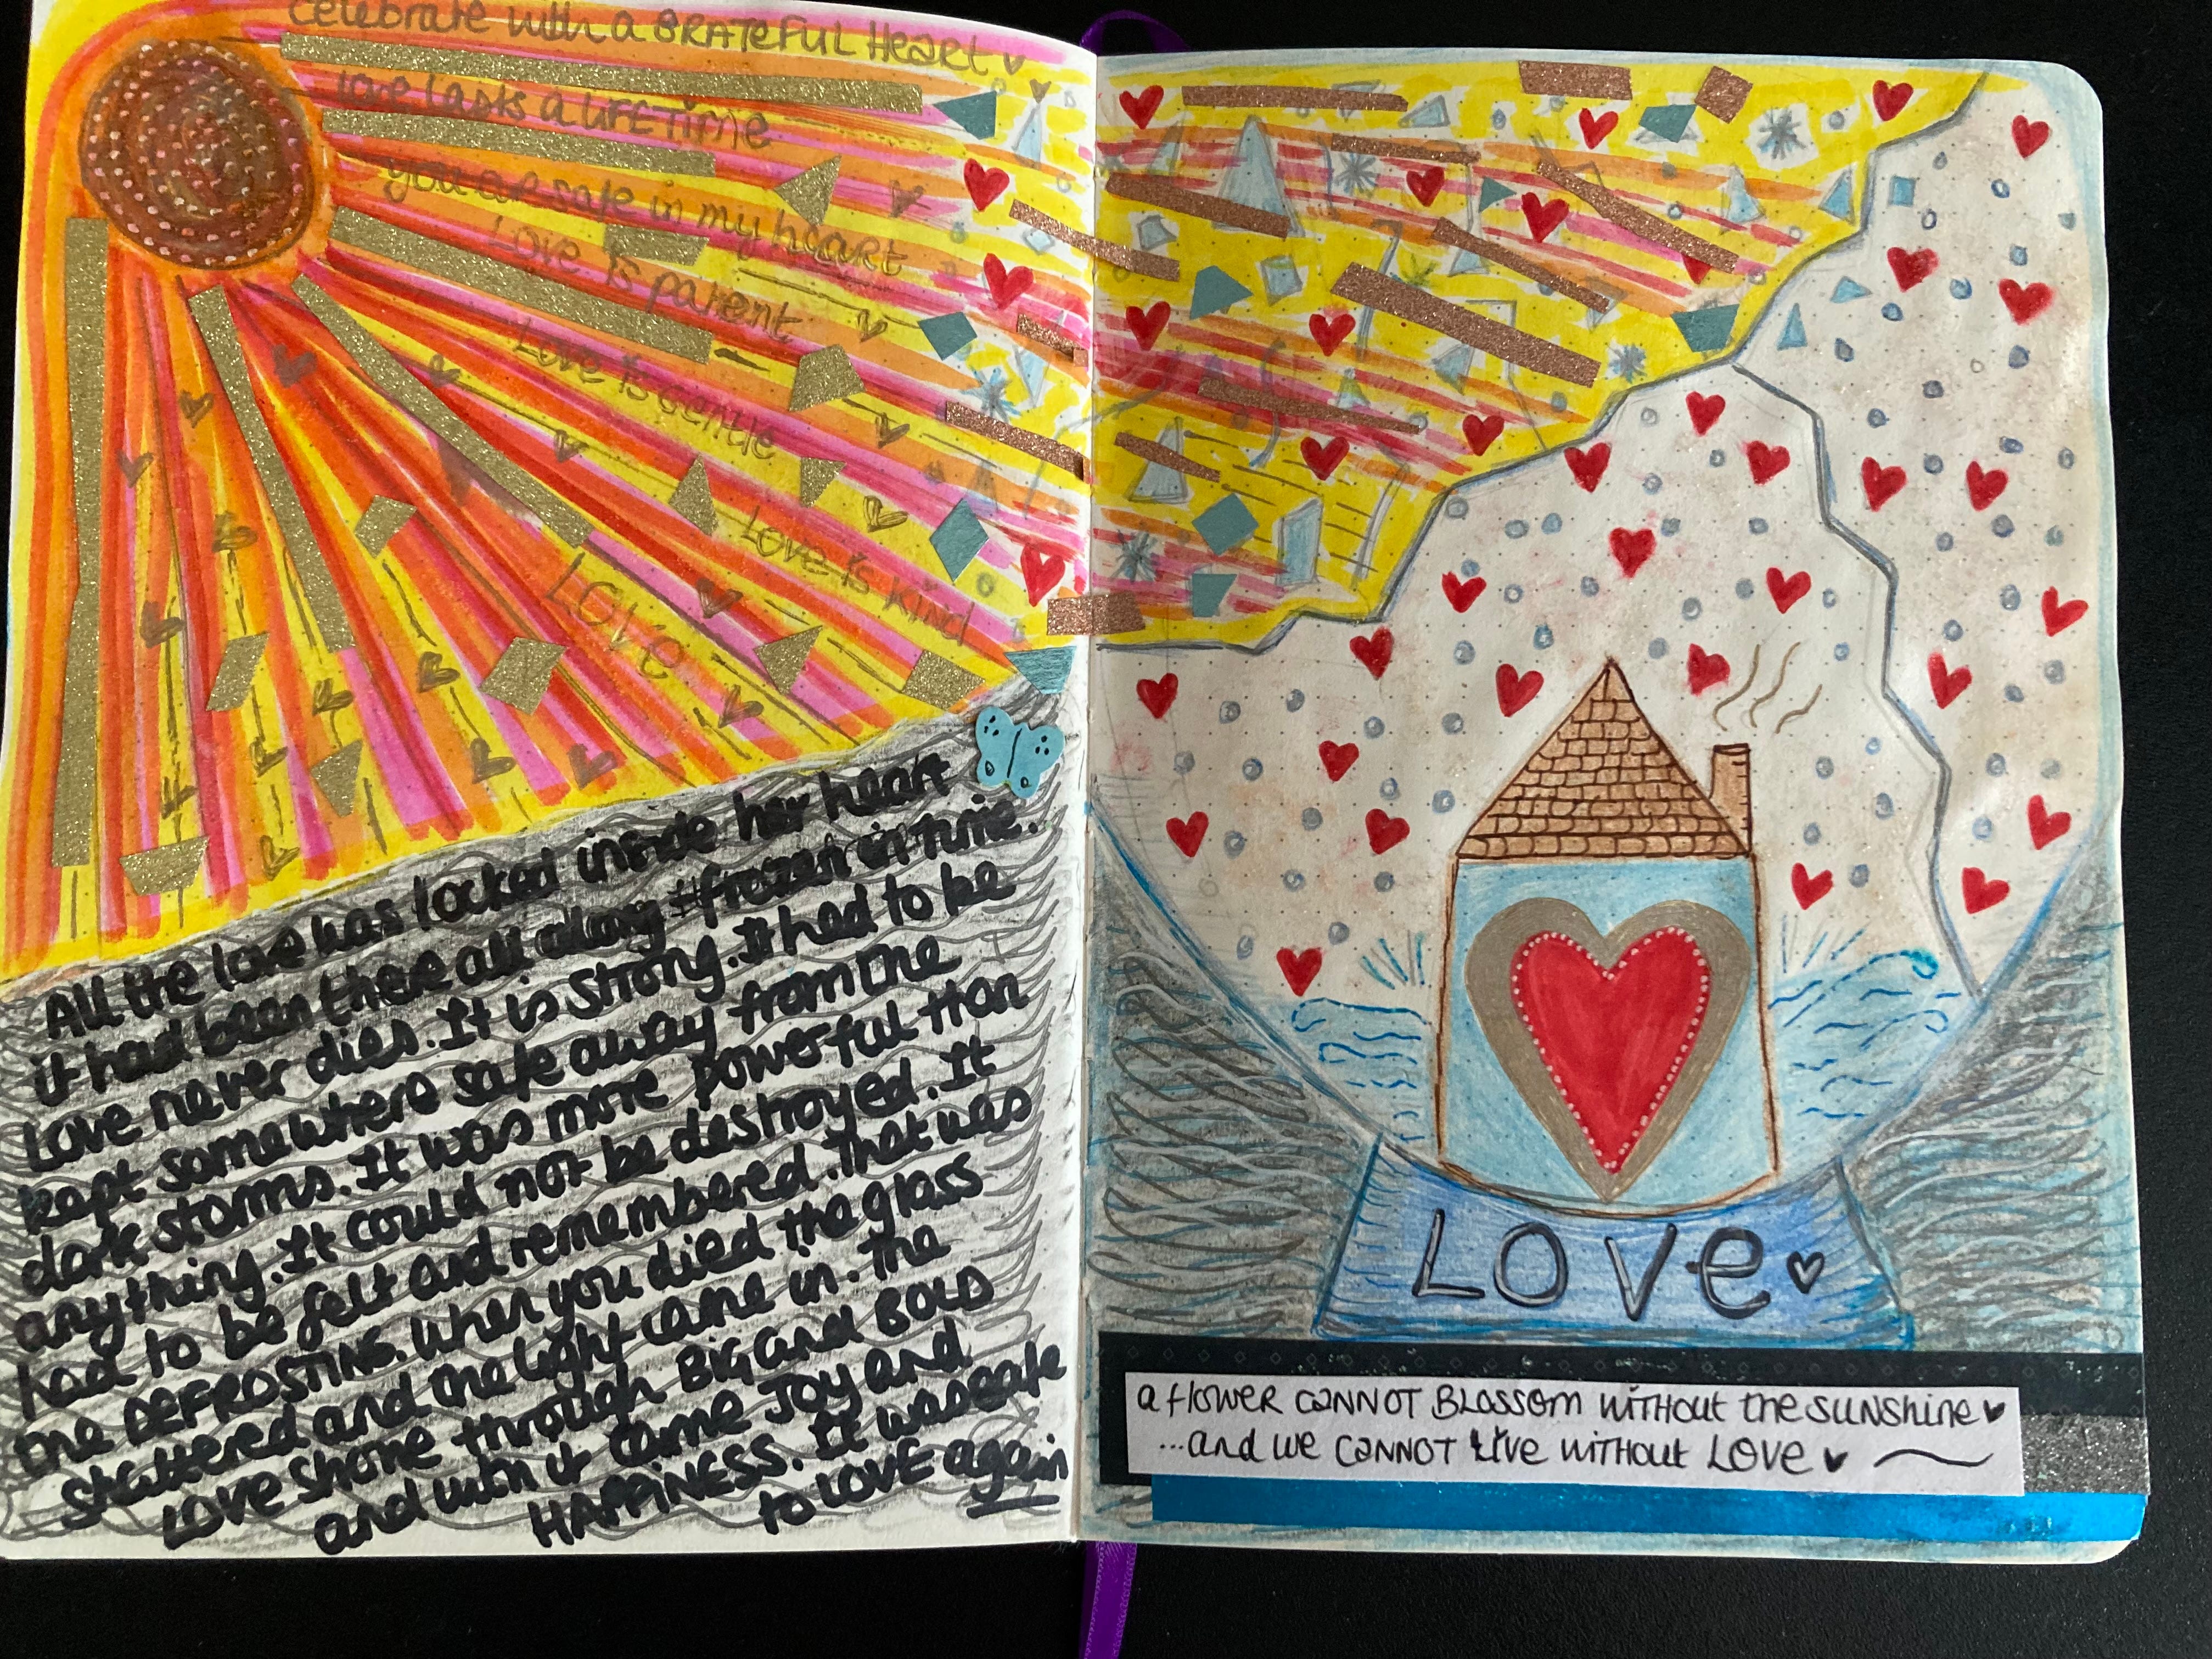 celebrate with a GRATEFUL Heart
love lasts a LIFE time
you are safe in my heart
Love is patient
Love is gentle
Love is kind
Love
All the love was locked inside her heart
it had been there all along frozen in time.
Love never dies. It is strong. It had to be
kept somewhere safe away from the
dark storms. It was more powerful than
anything. It could not be destroyed. It
had to be felt and remembered. That was
the DEFROSTING. When you died the glass
shattered and the light came in. The
LOVE shone through BIG and BOLD
and with it came JOY and
HAPPINESS. It was safe
to LOVE again
Love
a flower cannot Blossom without the sunshine
...and we cannot live without Love